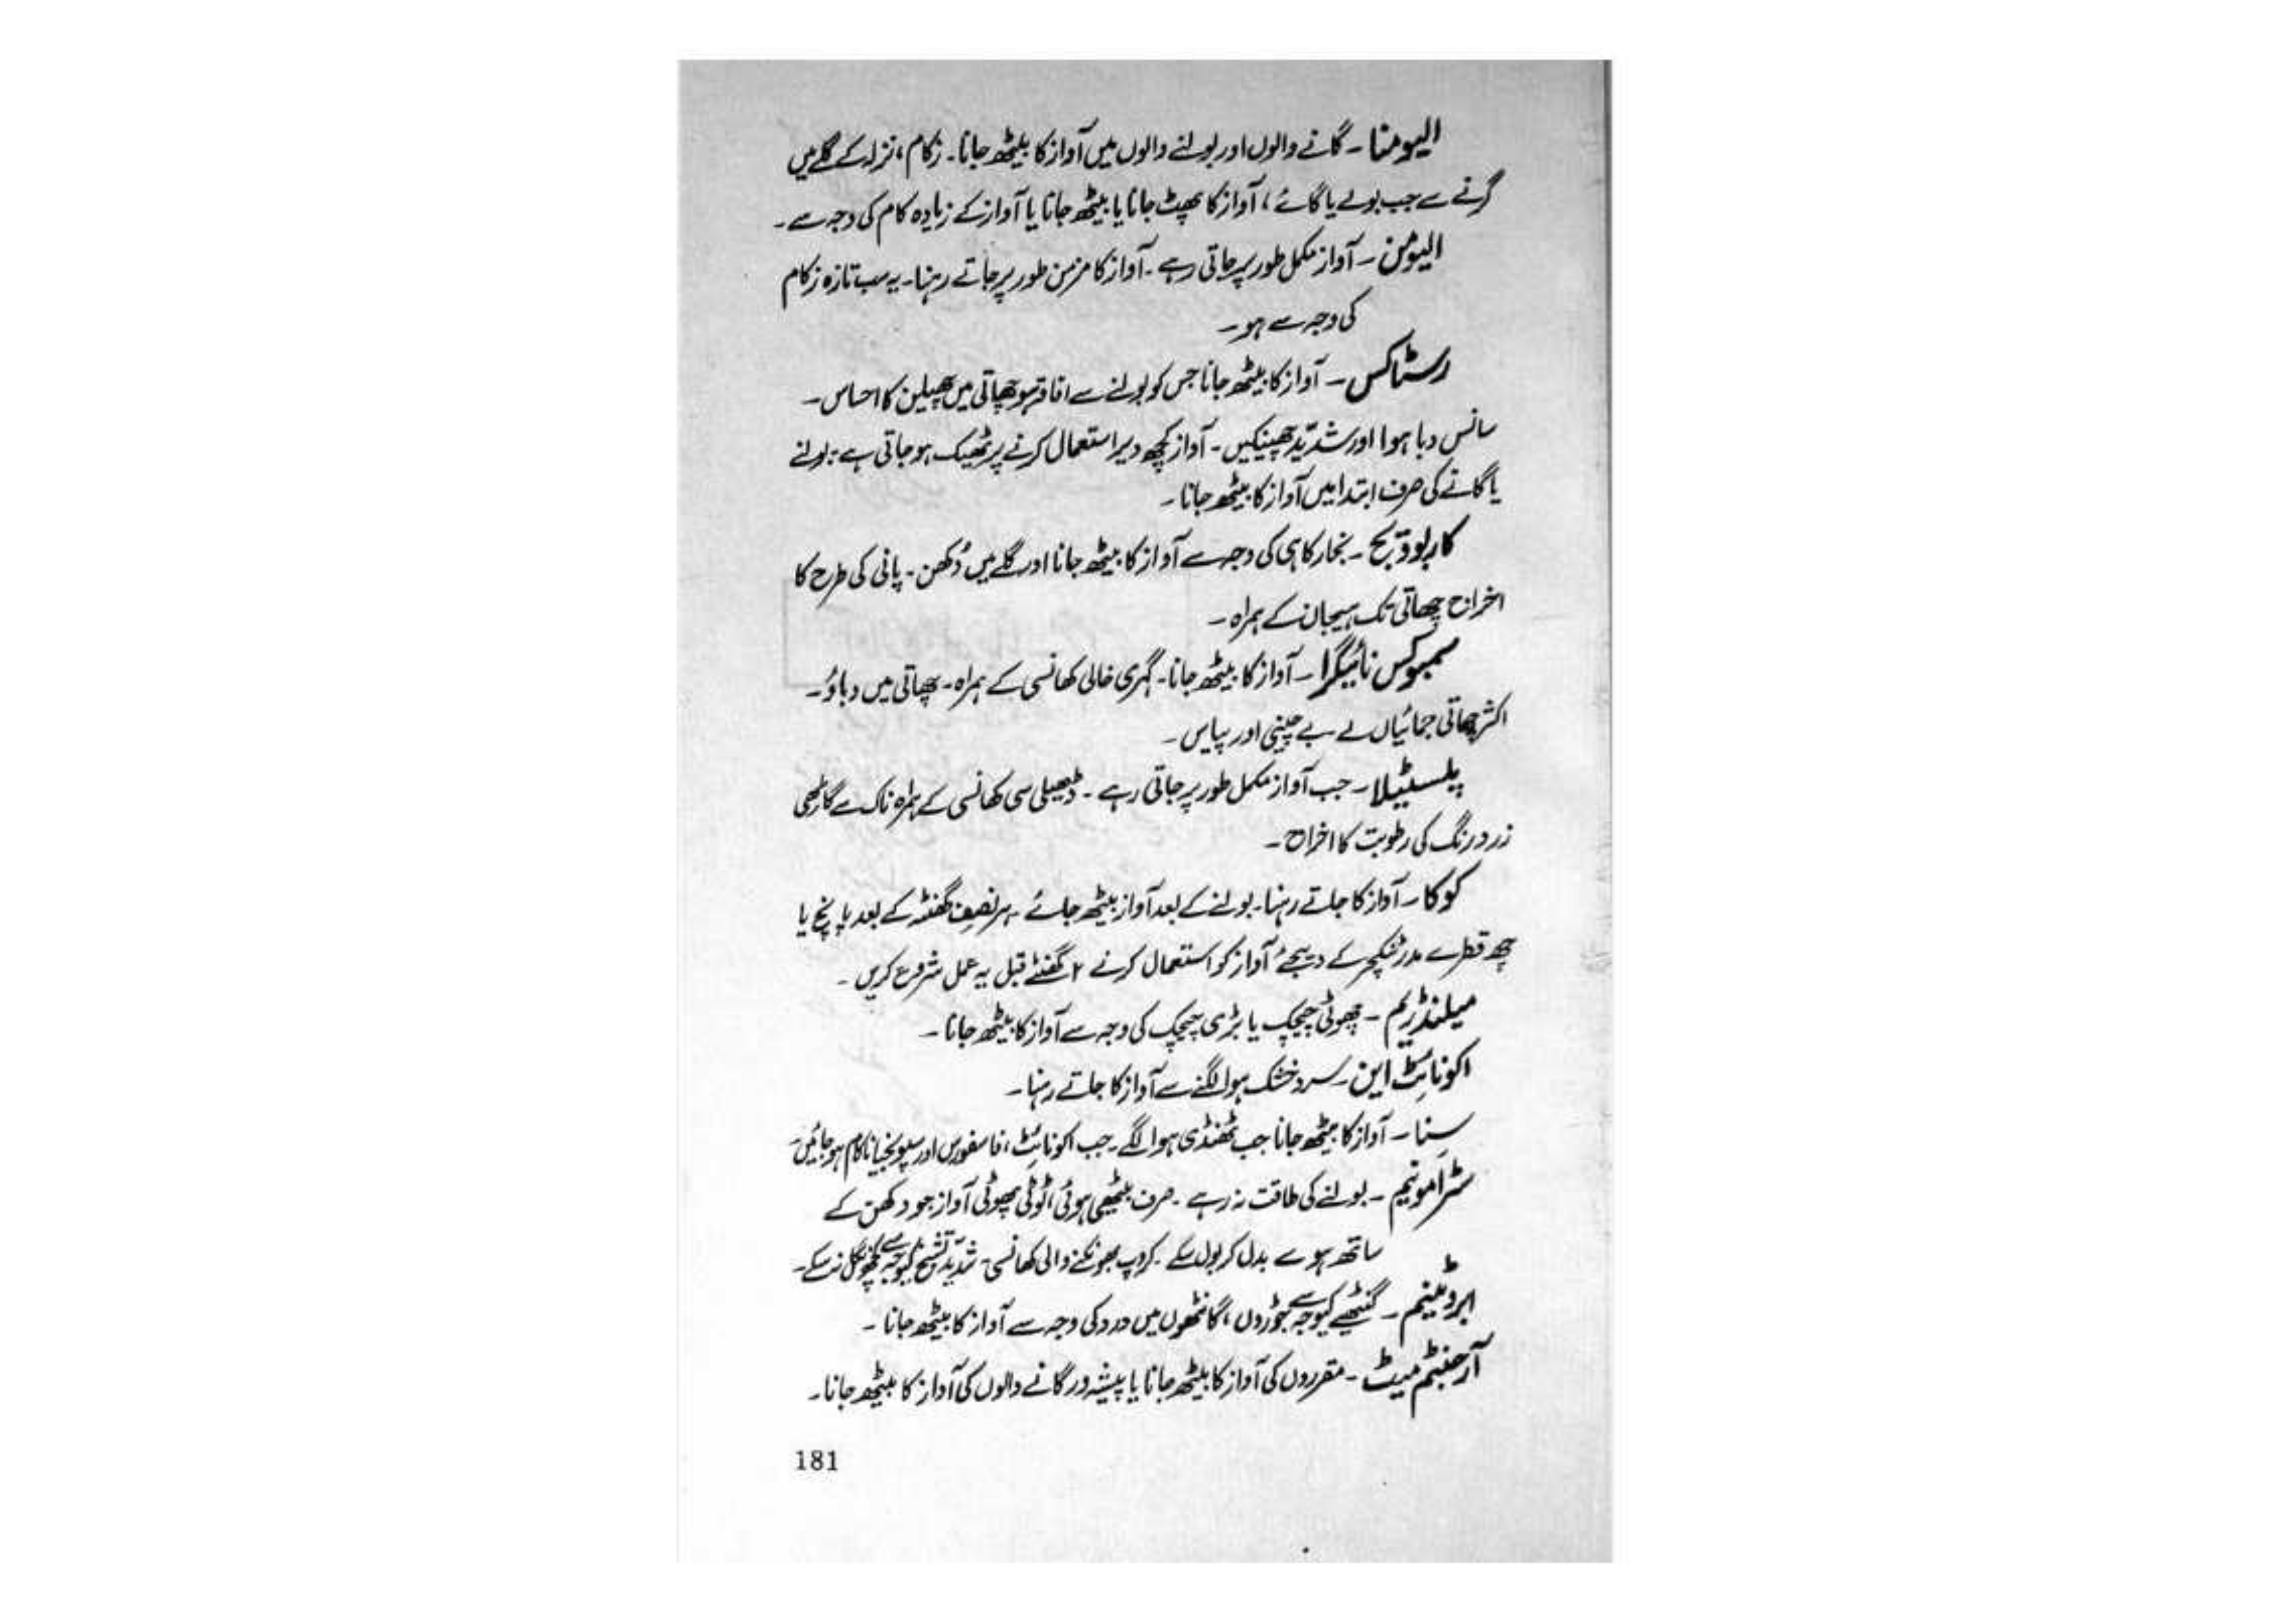 الیومنا ۔ گانے والوں اور بولنے والوں میں آواز کا بیٹھ جانا ۔ زکام، نزلہ کے گلے میں
گرنے سے جب بولے یا گائے، آواز کا پھٹ جانا یا بیٹھ جانا یا آواز کے زیادہ کام کی وجہ سے ۔
الیومن ۔ آواز مکمل طور پر جاتی رہے ۔ آواز کا مزمن طور پر جاتے رہنا ۔ یہ سب تازہ زکام
کی وجہ سے ہو ۔
رسٹاکس ۔ آواز کا بیٹھ جانا جس کو بولنے سے افاقہ ہو چھاتی میں چھیلن کا احساس ۔
سانس دبا ہوا اور شدید چھینکیں ۔ آواز کچھ دیر استعمال کرنے پر ٹھیک ہو جاتی ہے ۔ بولنے
یا گانے کی صرف ابتدا میں آواز کا بیٹھ جانا ۔
کاربوویج ۔ بخار کاہی کی وجہ سے آواز کا بیٹھ جانا اور گلے میں دُکھن ۔ پانی کی طرح کا
اخراج چھاتی تک ہیجان کے ہمراہ ۔
سمبوکس نائیگرا ۔ آواز کا بیٹھ جانا ۔ گہری خالی کھانسی کے ہمراہ ۔ چھاتی میں دباؤ ۔
اکثر چھاتی جمائیاں لے بے چینی اور پیاس ۔
پلسٹیلا ۔ جب آواز مکمل طور پر جاتی رہے ۔ ڈھیلی سی کھانسی کے ہمراہ ناک سے گاڑھی
زرد رنگ کی رطوبت کا اخراج ۔
کوکا ۔ آواز کا جاتے رہنا ۔ بولنے کے بعد آواز بیٹھ جائے ۔ ہر نصف گھنٹہ کے بعد پانچ یا
چھ قطرے مدر ٹنکچر کے دیجئے آواز کو استعمال کرنے ۲ گھنٹے قبل یہ عمل شروع کریں ۔
میلنڈریم ۔ چھوٹی چیچک یا بڑی چیچک کی وجہ سے آواز کا بیٹھ جانا ۔
اکونائٹ این ۔ سرد خشک ہوا لگنے سے آواز کا جاتے رہنا ۔
سِنا ۔ آواز کا بیٹھ جانا جب ٹھنڈی ہوا لگے ۔ جب اکونائٹ، فاسفورس اور سپونجیا ناکام ہو جائیں ۔
سٹرامونیم ۔ بولنے کی طاقت نہ رہے ۔ صرف بیٹھی ہوئی، ٹوٹی پھوٹی آواز جو دکھن کے
ساتھ ہو ۔ بدل کر بول سکے ۔ کروپ بھونکنے والی کھانسی ۔ شدید تشنج کیوجہ سے کچھ نگل نہ سکے ۔
ابروٹینم ۔ گنٹھیے کیوجہ سے جوڑوں، گانٹھوں میں درد کی وجہ سے آواز کا بیٹھ جانا ۔
آرجنٹم میٹ ۔ مقرروں کی آواز کا بیٹھ جانا یا پیشہ ور گانے والوں کی آواز کا بیٹھ جانا ۔
181